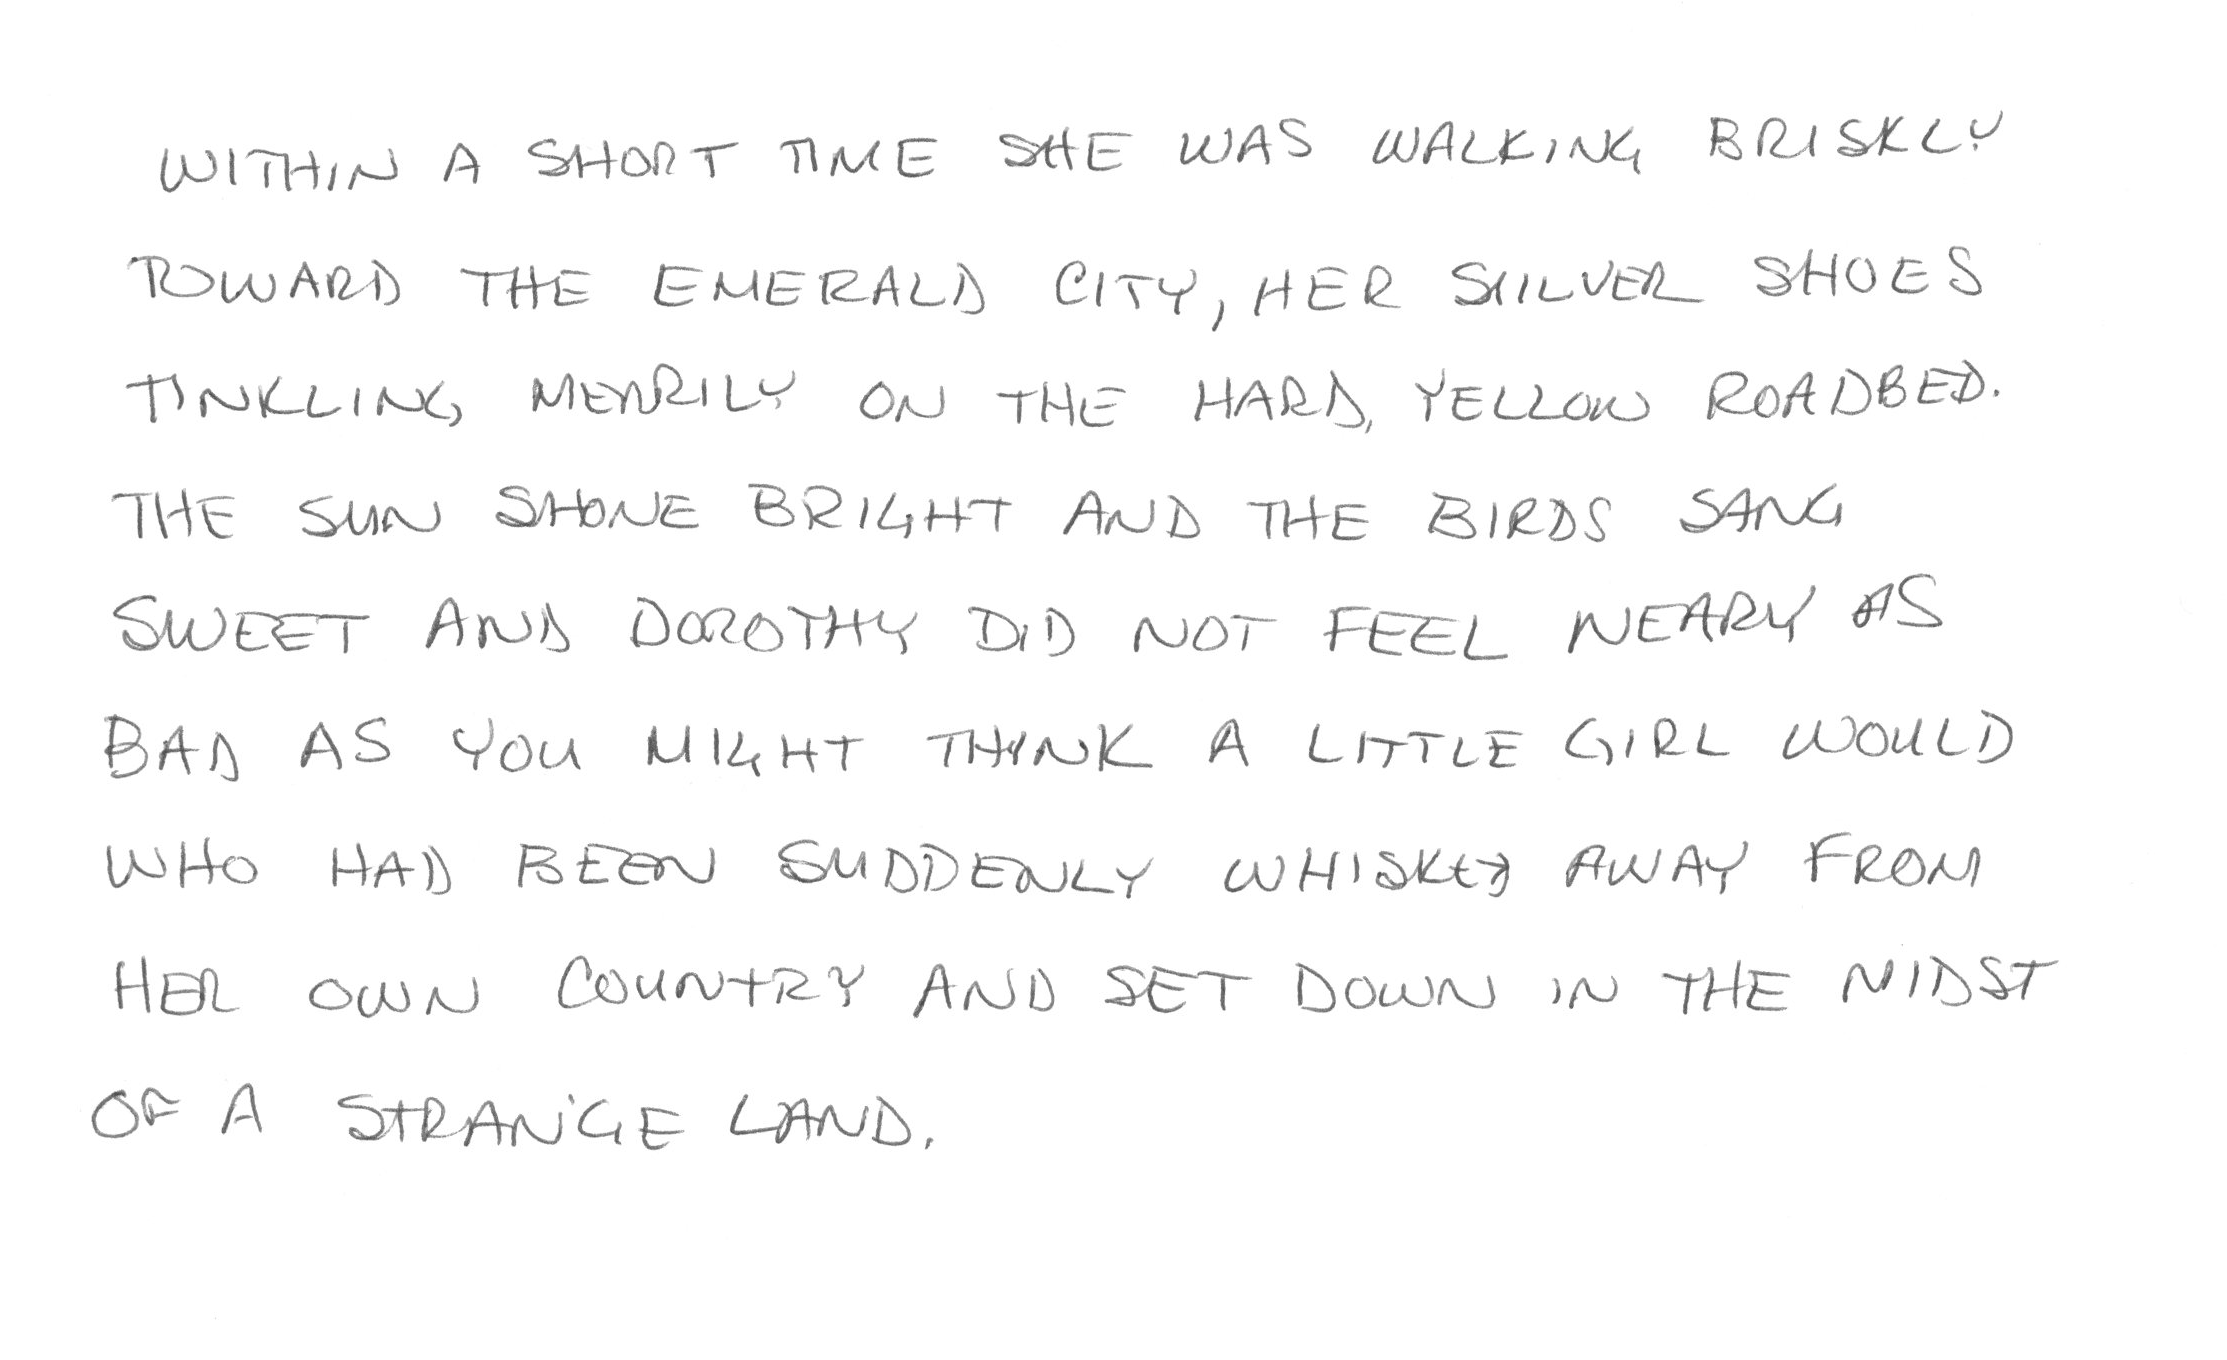 WITHIN A SHORT TIME SHE WAS WALKING BRISKLY
TOWARD THE EMERALD CITY, HER SIILVER SHOES
TINKLING MERRILY ON THE HARD, YELLOW ROADBED.
THE SUN SHONE BRIGHT AND THE BIRDS SANG
SWEET AND DOROTHY DID NOT FEEL NEARY AS
BAD AS YOU MIGHT THINK A LITTLE GIRL WOULD
WHO HAD BEEN SUDDENLY AWAY FROM
HER OWN COUNTRY AND SET DOWN IN THE MIDST
OF A STRANGE LAND.